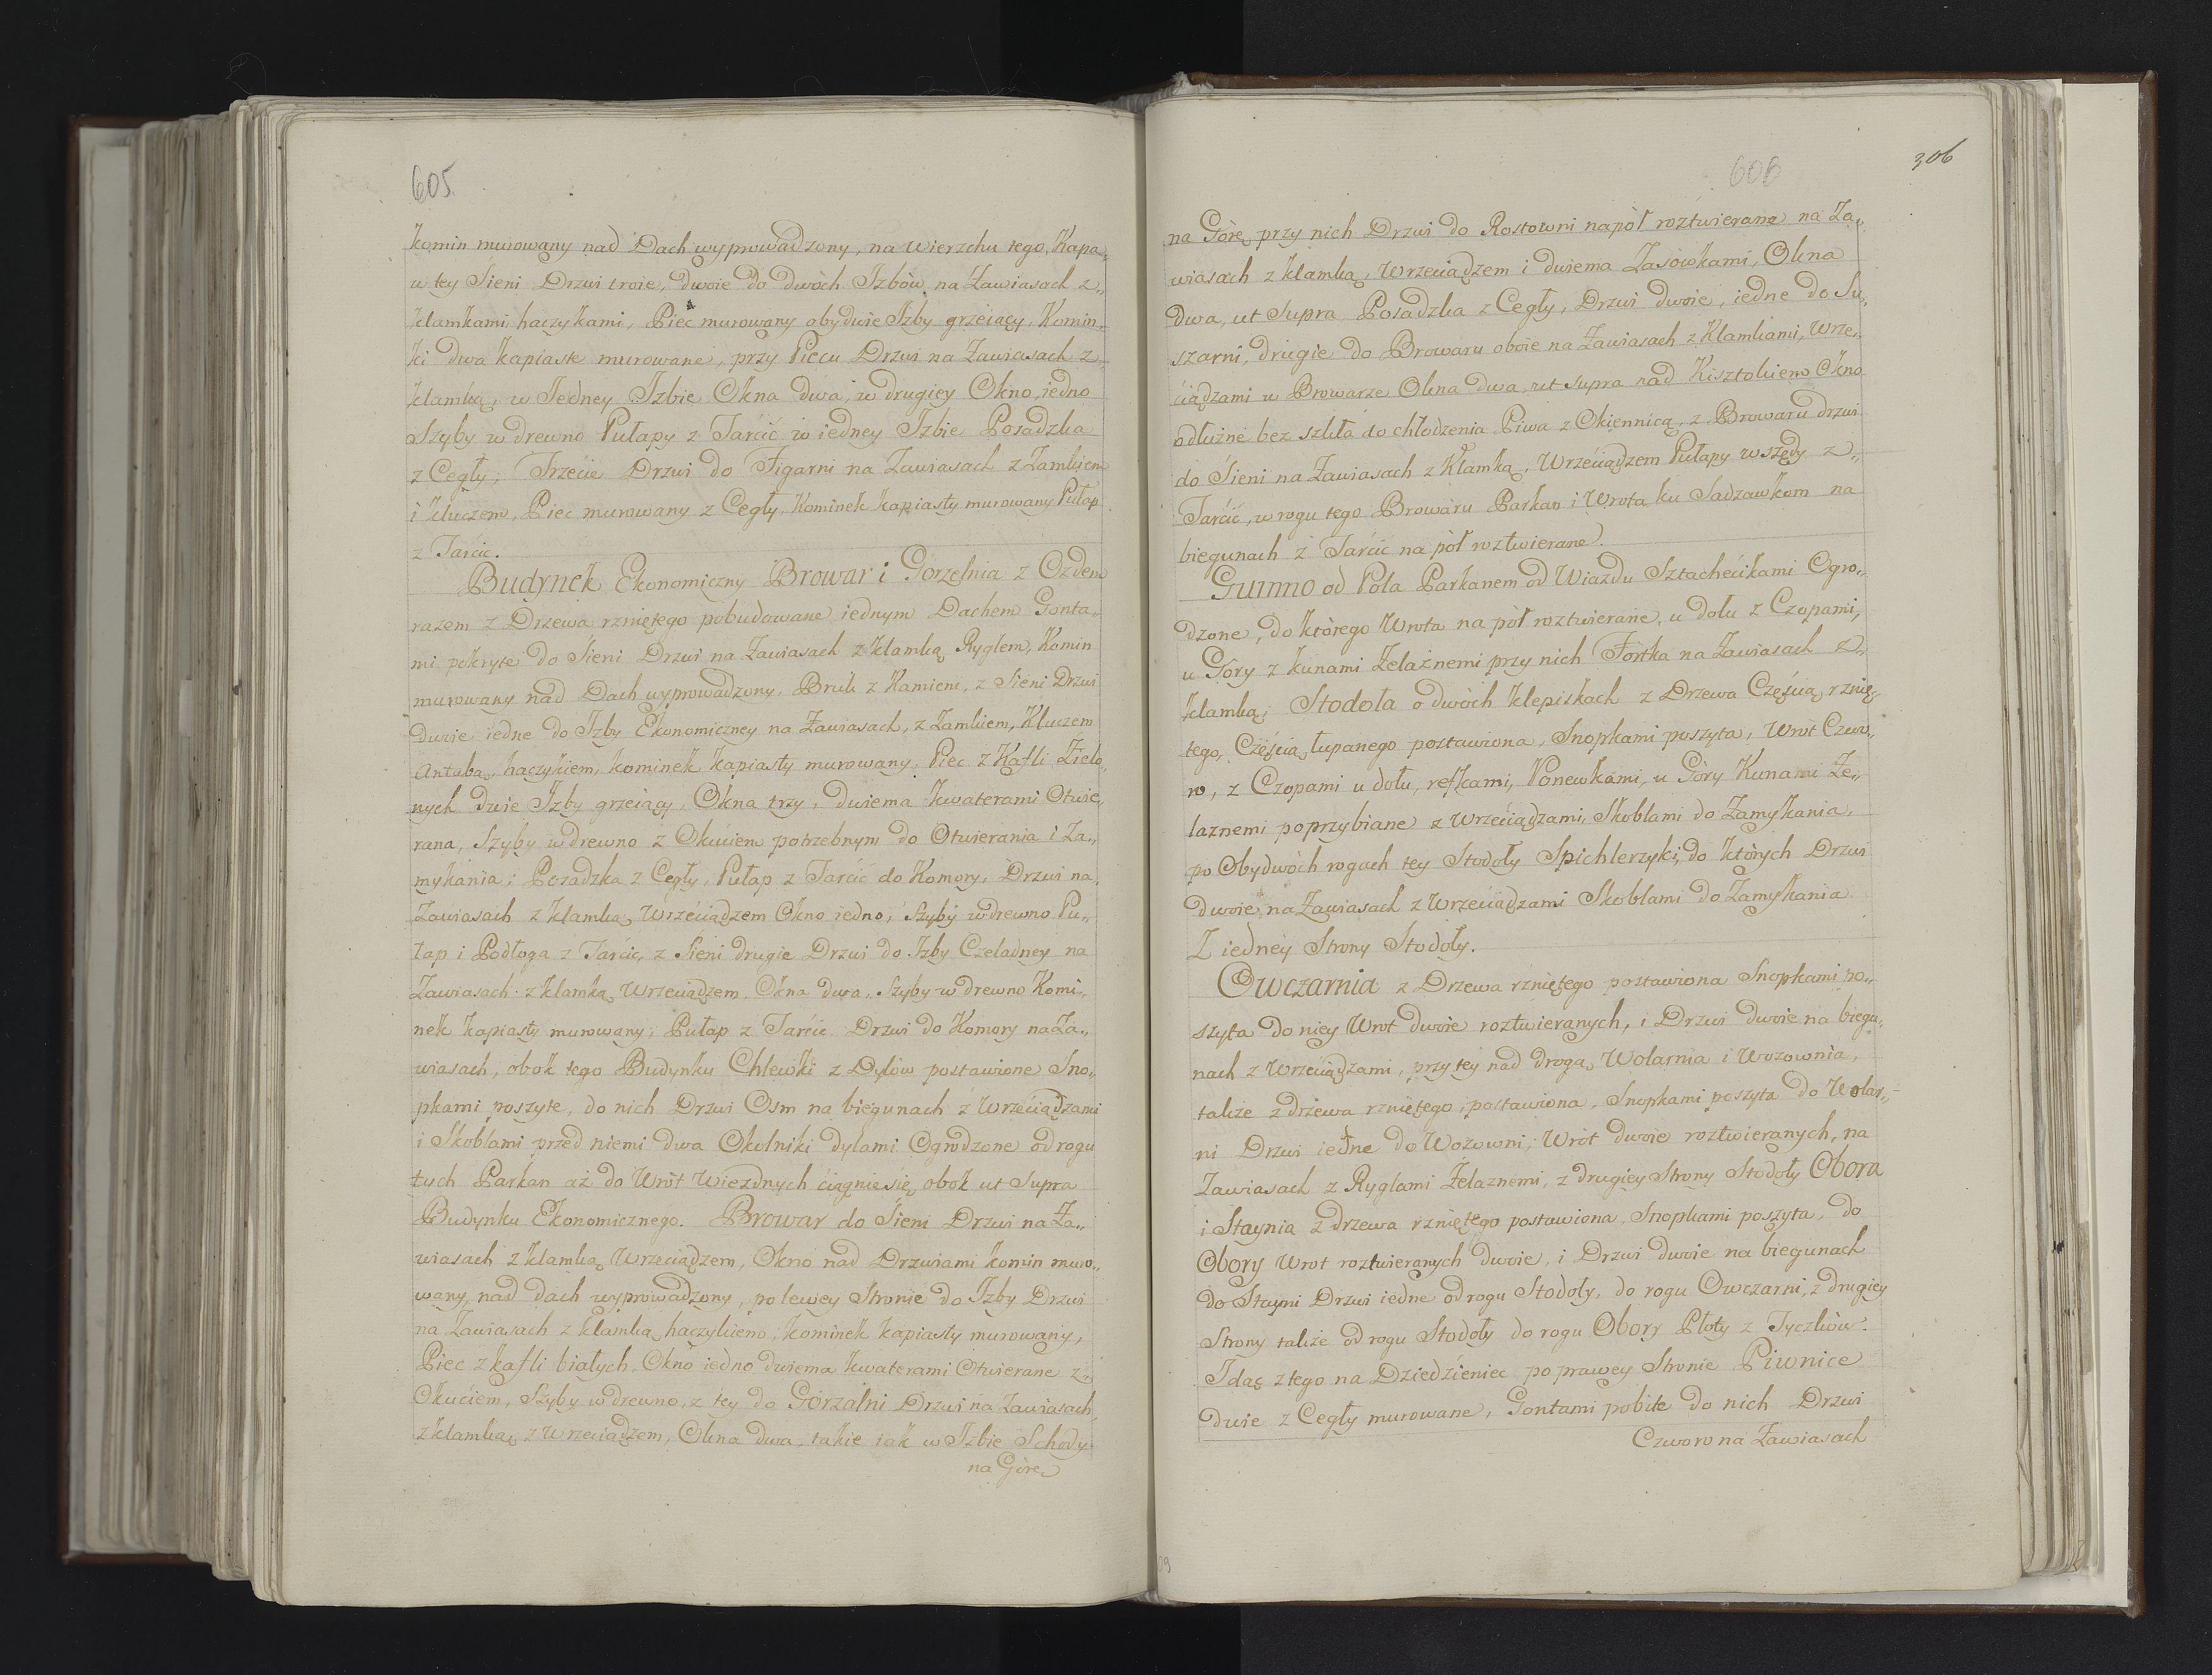 605
komin murowany nad Dach wyprowadzony, na wierzchu tego, Kapa„
w tey Sieni Drzwi troie, dwoie do dwòch Izbòw na Zawiasach z„
klamkami haczykami, Piec murowany obydwie Izby grzeiący, Komin„
ki dwa kapiaste murowane, przy Piecu Drzwi na Zawiasach z„
klamką, w Jedney Izbie Okna dwa, w drugiey Okno iedno
Szyby w drewno Pułapy z Tarcic w iedney Izbie Posadzka
z Cegły; Trzecie Drzwi do Figarni na Zawiasach z Zamkiem
i kluczem, Piec murowany z Cegły, Kominek kapiasty murowany Pułap
z Tarcic.
Budynek Ekonomiczny Browar i Gorzelnia z Ozdem
razem z Drzewa rzniętego pobudowane iednym Dachem Gonta„
mi pokryte do Sieni Drzwi na Zawiasach z klamką Ryglem, Komin
murowany nad Dach wyprowadzony, Bruk z Kamieni, z Sieni Drzwi
Dwoie iedne do Izby Ekonomiczney na Zawiasach, z Zamkiem, Kluczem
Antabą, haczykiem, kominek kapiasty murowany, Piec z Kafli Zielo„
nych dwie Izby grzeiący, Okna trzy, dwiema kwaterami Otwie„
rana, Szyby w drewno z Okuciem potrzebnym do Otwierania i Za„
mykania; Posadzka z Cegły, Pułap z Tarcic do Komory, Drzwi na
Zawiasach z klamką, Wrzeciądzem Okno iedno, Szyby w drewno Pu„
łap i Podłoga z Tarcic, z Sieni drugie Drzwi do Izby Czeladney na
Zawiasach z klamką, Wrzeciądzem, Okna dwa, Szyby w drewno Komi„
nek kapiasty murowany, Pułap z Tarcic Drzwi do Komory na Za„
wiasach, obok tego Budynku Chlewki z Dylòw postawione Sno„
pkami poszyte, do nich Drzwi Osm na biegunach z Wrzeciądzami
i Skoblami przed niemi dwa Okolniki dylami Ogrodzone od rogu
tych Parkan aż do Wròt Wiezdnych ciągnie się, obok ut Supra
Budynku Ekonomicznego. Browar do Sieni Drzwi na Za„
wiasach z klamką Wrzeciądzem, Okno nad Drzwiami komin muro„
wany nad dach wyprowadzony, po lewey Stronie do Izby Drzwi
na Zawiasach z klamką, haczykiem, kominek kapiasty murowany,
Piec z kafli białych, Okno iedno dwiema kwaterami Otwierane z„
Okuciem, Szyby w drewno, z tey do Gorzalni Drzwi na Zawiasach
z klamką z Wrzeciądzem, Okna dwa, takie iak w Izbie Schody
na Gòrę
606
306
na Gòrę, przy nich Drzwi do Rostowni napòł roztwierane na Za„
wiasach z klamką, Wrzeciądzem i dwiema Zasówkami, Okna
dwa, ut Supra Posadzka z Cegły, Drzwi dwoie, iedne do Su„
szarni, drugie do Browaru oboie na Zawiasach z Klamkami, Wrze„
ciądzami w Browarze Okna dwa, ut supra nad Kisztokiem Okno
odłużne bez szkła do chłodzenia Piwa z Okiennicą, z Browaru drzwi
do Sieni na Zawiasach z Klamką, Wrzeciądzem Pułapy wszędy z„
Tarcic, w rogu tego Browaru Parkan i Wrota ku Sadzawkom na
biegunach z Tarcic na pòł roztwierane.
Gumno od Pola Parkanem od Wiazdu Sztachecikami Ogro„
dzone, do ktòrego Wrota na pòł roztwierane, u dołu z Czopami,
u Gory z kunami Zelaznemi przy nich Fortka na Zawiasach z„
klamką; Stodoła o dwòch klepiskach z Drzewa Częścią rznię„
tego, Częścią łupanego postawiona, Snopkami poszyta, Wròt Czwo„
ro, z Czopami u dołu, refkami, Ponewkami, u Gòry Kunami Ze„
laznemi poprzybiane z Wrzeciądzami, Skoblami do Zamykania,
po Obydwòch rogach tey Stodoły Spichlerzyki, do ktòrych Drzwi
dwoie, na Zawiasach z Wrzeciądzami Skoblami do Zamykania
Z iedney Strony Stodoły.
Owczarnia z Drzewa rzniętego postawiona Snopkami po„
szyta do niey Wrot dwoie roztwieranych, i Drzwi dwoie na biegu„
nach z Wrzeciądzami, przy tey nad drogą Wolarnia i Wozownia,
takze z drzewa rzniętego, postawiona, Snopkami poszyta do Wolar„
ni Drzwi iedne do Wozowni, Wròt dwoie roztwieranych, na
Zawiasach z Ryglami Zelaznemi, z drugiey Strony Stodoły Obora
i Staynia z drzewa rzniętego postawiona, Snopkami poszyta, do
Obory Wrot roztwieranych dwoie, i Drzwi dwoie na biegunach
do Stayni Drzwi iedne od rogu Stodoły, do rogu Owczarni, z drugiey
Strony takze od rogu Stodoły do rogu Obory Płoty z Tyczkòw.
Idąc z tego na Dziedzieniec po prawey Stronie Piwnice
dwie z Cegły murowane, Gontami pobite do nich Drzwi
Czworo na Zawiasach